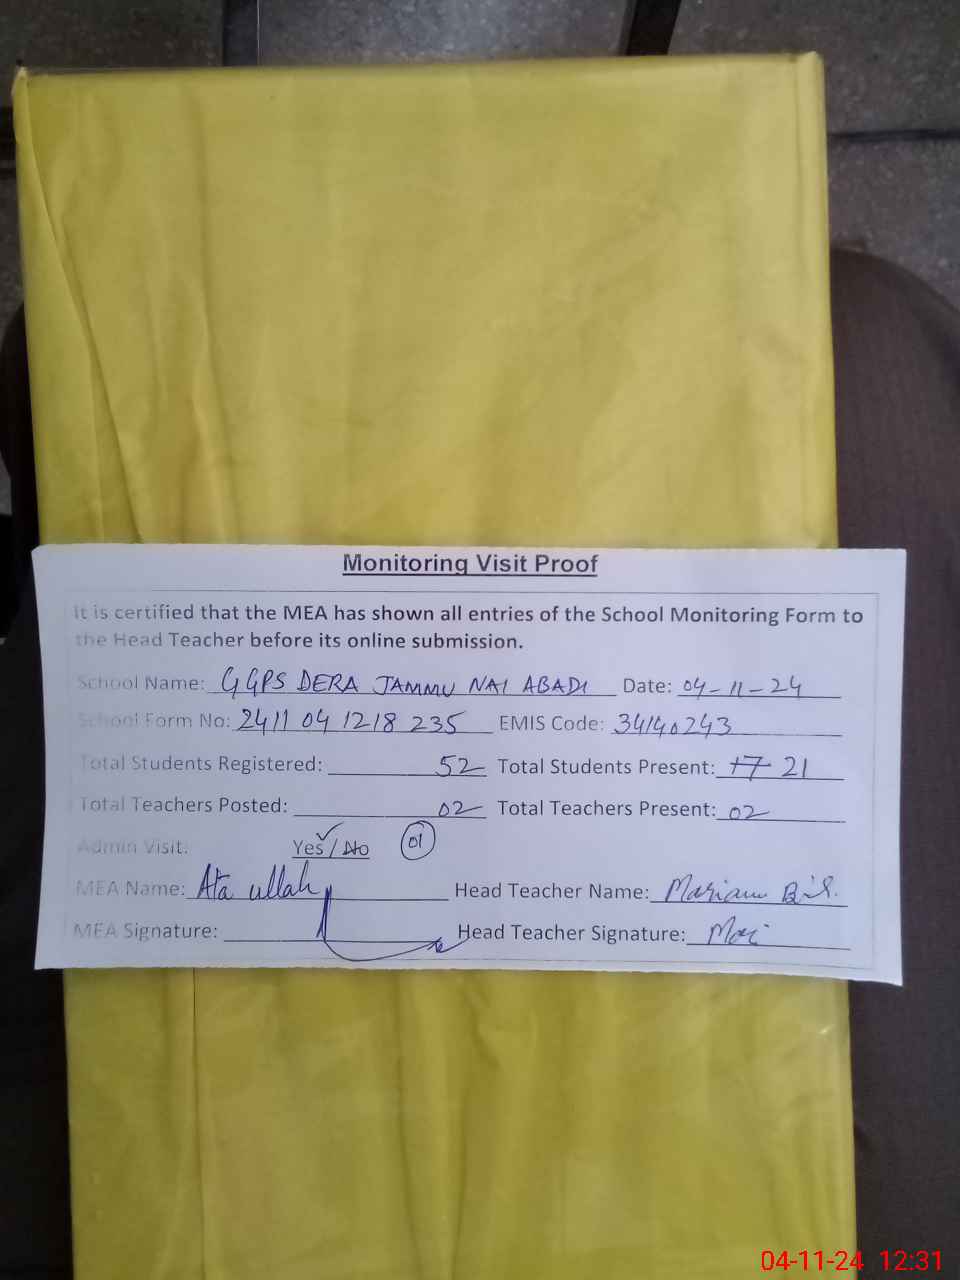 Monitoring Visit Proof
It is certified that the MEA has shown all entries of the School Monitoring Form to
the Head Teacher before its online submission.
School Name: GGPS DERA JAMMU NAI ABADI Date: 04-11-24
School Form No: 2411 04 1218 235 EMIS Code: 34140243
Total Students Registered: 52 Total Students Present: 17 21
Total Teachers Posted: 02 Total Teachers Present: 02
Admin Visit: Yes / No 01
MEA Name: Ata ullah Head Teacher Name: Mariam
MEA Signature: Head Teacher Signature:
04-11-24 12:31